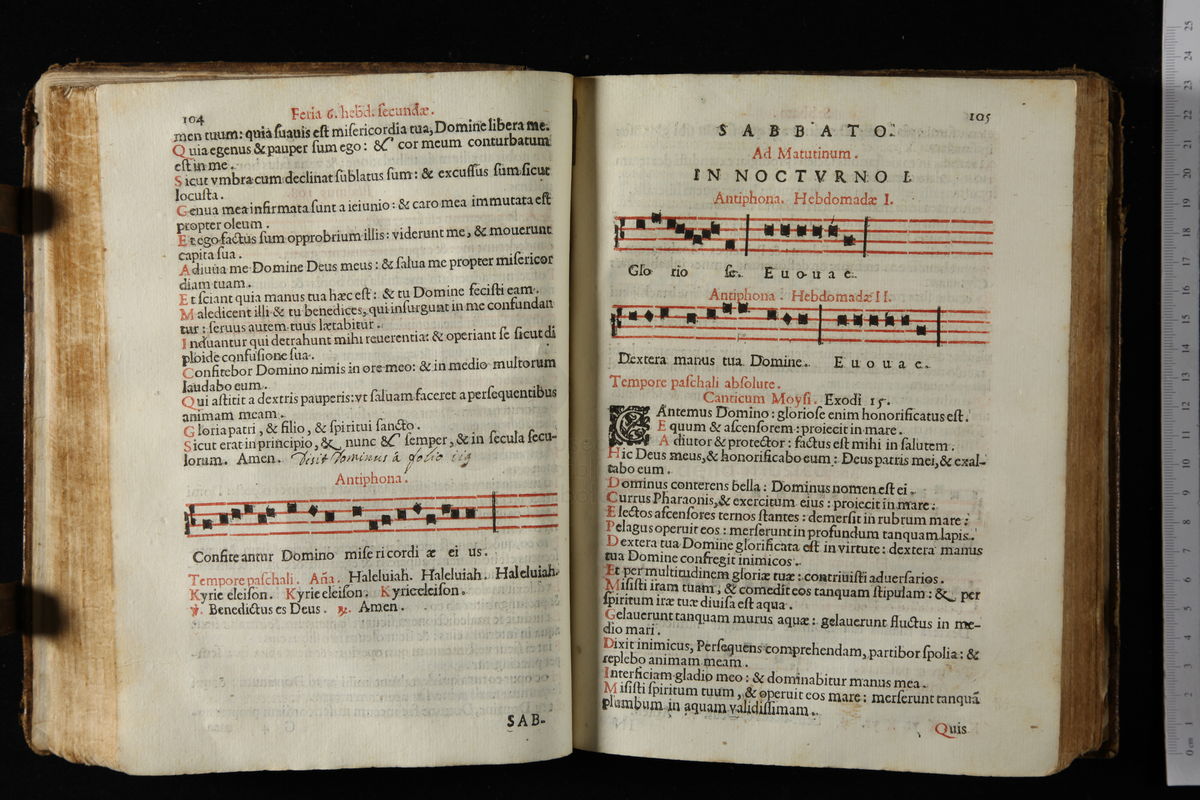 104
Feria 6. hebd. secundæ.
men tuum: quia suauis est misericordia tua, Domine libera me.
Quia egenus & pauper sum ego: & cor meum conturbatum
est in me.
Sicut vmbra cum declinat sublatus sum: & excussus sum sicut
locusta.
Genua mea infirmata sunt a ieiunio: & caro mea immutata est
propter oleum.
Et ego factus sum opprobrium illis: viderunt me, & mouerunt
capita sua.
Adiuua me Domine Deus meus: & salua me propter misericor
diam tuam.
Et sciant quia manus tua hæc est: & tu Domine fecisti eam.
Maledicent illi & tu benedices, qui insurgunt in me confundan
tur: seruus autem tuus lætabitur.
Induantur qui detrahunt mihi reuerentia: & operiant se sicut di
ploide confusione sua.
Confitebor Domino nimis in ore meo: & in medio multorum
laudabo eum.
Qui astitit a dextris pauperis: vt saluam faceret a persequentibus
animam meam.
Gloria patri, & filio, & spiritui sancto.
Sicut erat in principio, & nunc & semper, & in secula secu-
lorum. Amen. Dixit Dominus à folio
Antiphona.
Confite antur Domino mise ri cordi æ ei us.
Tempore paschali. Aña. Haleluiah. Haleluiah. Haleluiah.
Kyrie eleison. Kyrie eleison. Kyrie eleison.
℣. Benedictus es Deus. ℟. Amen.
SAB-
105
SABBATO.
Ad Matutinum.
IN NOCTVRNO I.
Antiphona. Hebdomadæ I.
Glo rio se. E u o u a e.
Antiphona. Hebdomadæ II.
Dextera manus tua Domine. E u o u a e.
Tempore paschali absolute.
Canticum Moysi. Exodi 15.
CAntemus Domino: gloriose enim honorificatus est.
Equum & ascensorem: proiecit in mare.
Adiutor & protector: factus est mihi in salutem.
Hic Deus meus, & honorificabo eum: Deus patris mei, & exal-
tabo eum.
Dominus conterens bella: Dominus nomen est ei.
Currus Pharaonis, & exercitum eius: proiecit in mare:
Electos ascensores ternos stantes: demersit in rubrum mare:
Pelagus operuit eos: merserunt in profundum tanquam lapis.
Dextera tua Domine glorificata est in virtute: dextera manus
tua Domine confregit inimicos.
Et per multitudinem gloriæ tuæ: contriuisti aduersarios.
Misisti iram tuam, & comedit eos tanquam stipulam: & per
spiritum iræ tuæ diuisa est aqua.
Gelauerunt tanquam murus aquæ: gelauerunt fluctus in me-
dio mari.
Dixit inimicus, Persequens comprehendam, partibor spolia: &
replebo animam meam.
Interficiam gladio meo: & dominabitur manus mea.
Misisti spiritum tuum, & operuit eos mare: merserunt tanquã
plumbum in aquam validissimam.
Quis